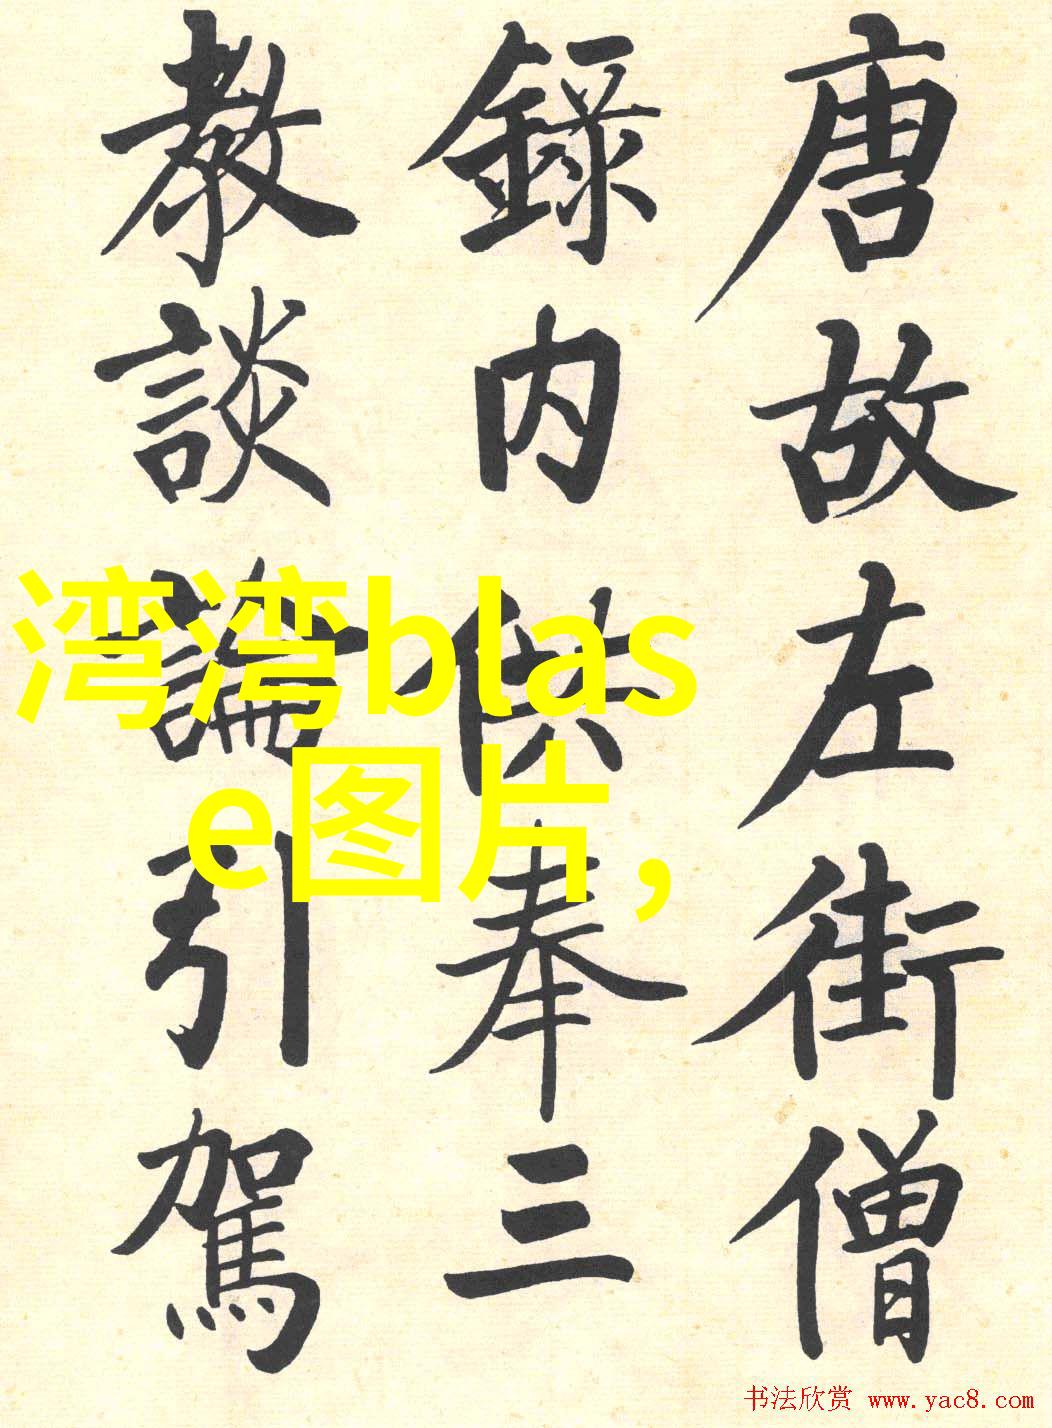 唐故左街僧
録内供奉三
教談論引駕
湾湾blas
e图片，
书法欣赏 www.yac8.com